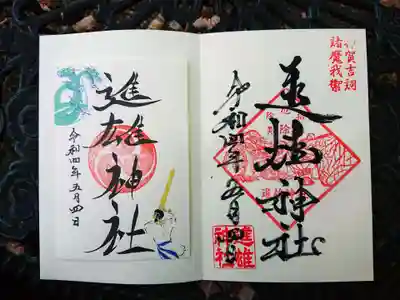 諸魔我禦
進雄神社
令和四年五月四日
進雄神社
進雄神社
令和四年五月四日